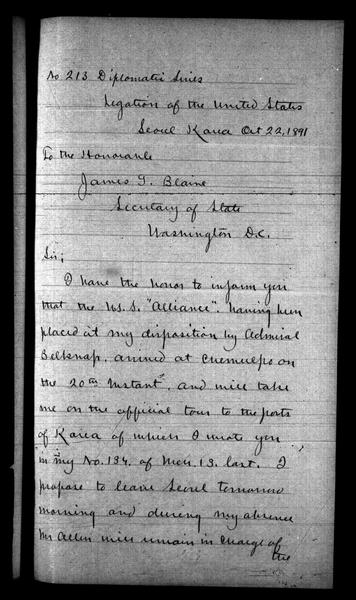 No 213 Diplomatic Series
Legation of the United States
Seoul Korea Oct 22, 1891
To the Honorable
James G. Blaine
Secretary of State
Washington D.C.
Sir;
I have the honor to inform you
that the U.S.S. "Alliance", having been
placed at my disposition by Admiral
Belknap, arrived at Chemulpo on
the 20th Instant, and will take
me on the official tour to the ports
of Korea of which I wrote you
in my No. 134, of Mch. 13. last. I
propose to leave Seoul tomorrow
morning and during my absence
Mr Allen will remain in charge of
the